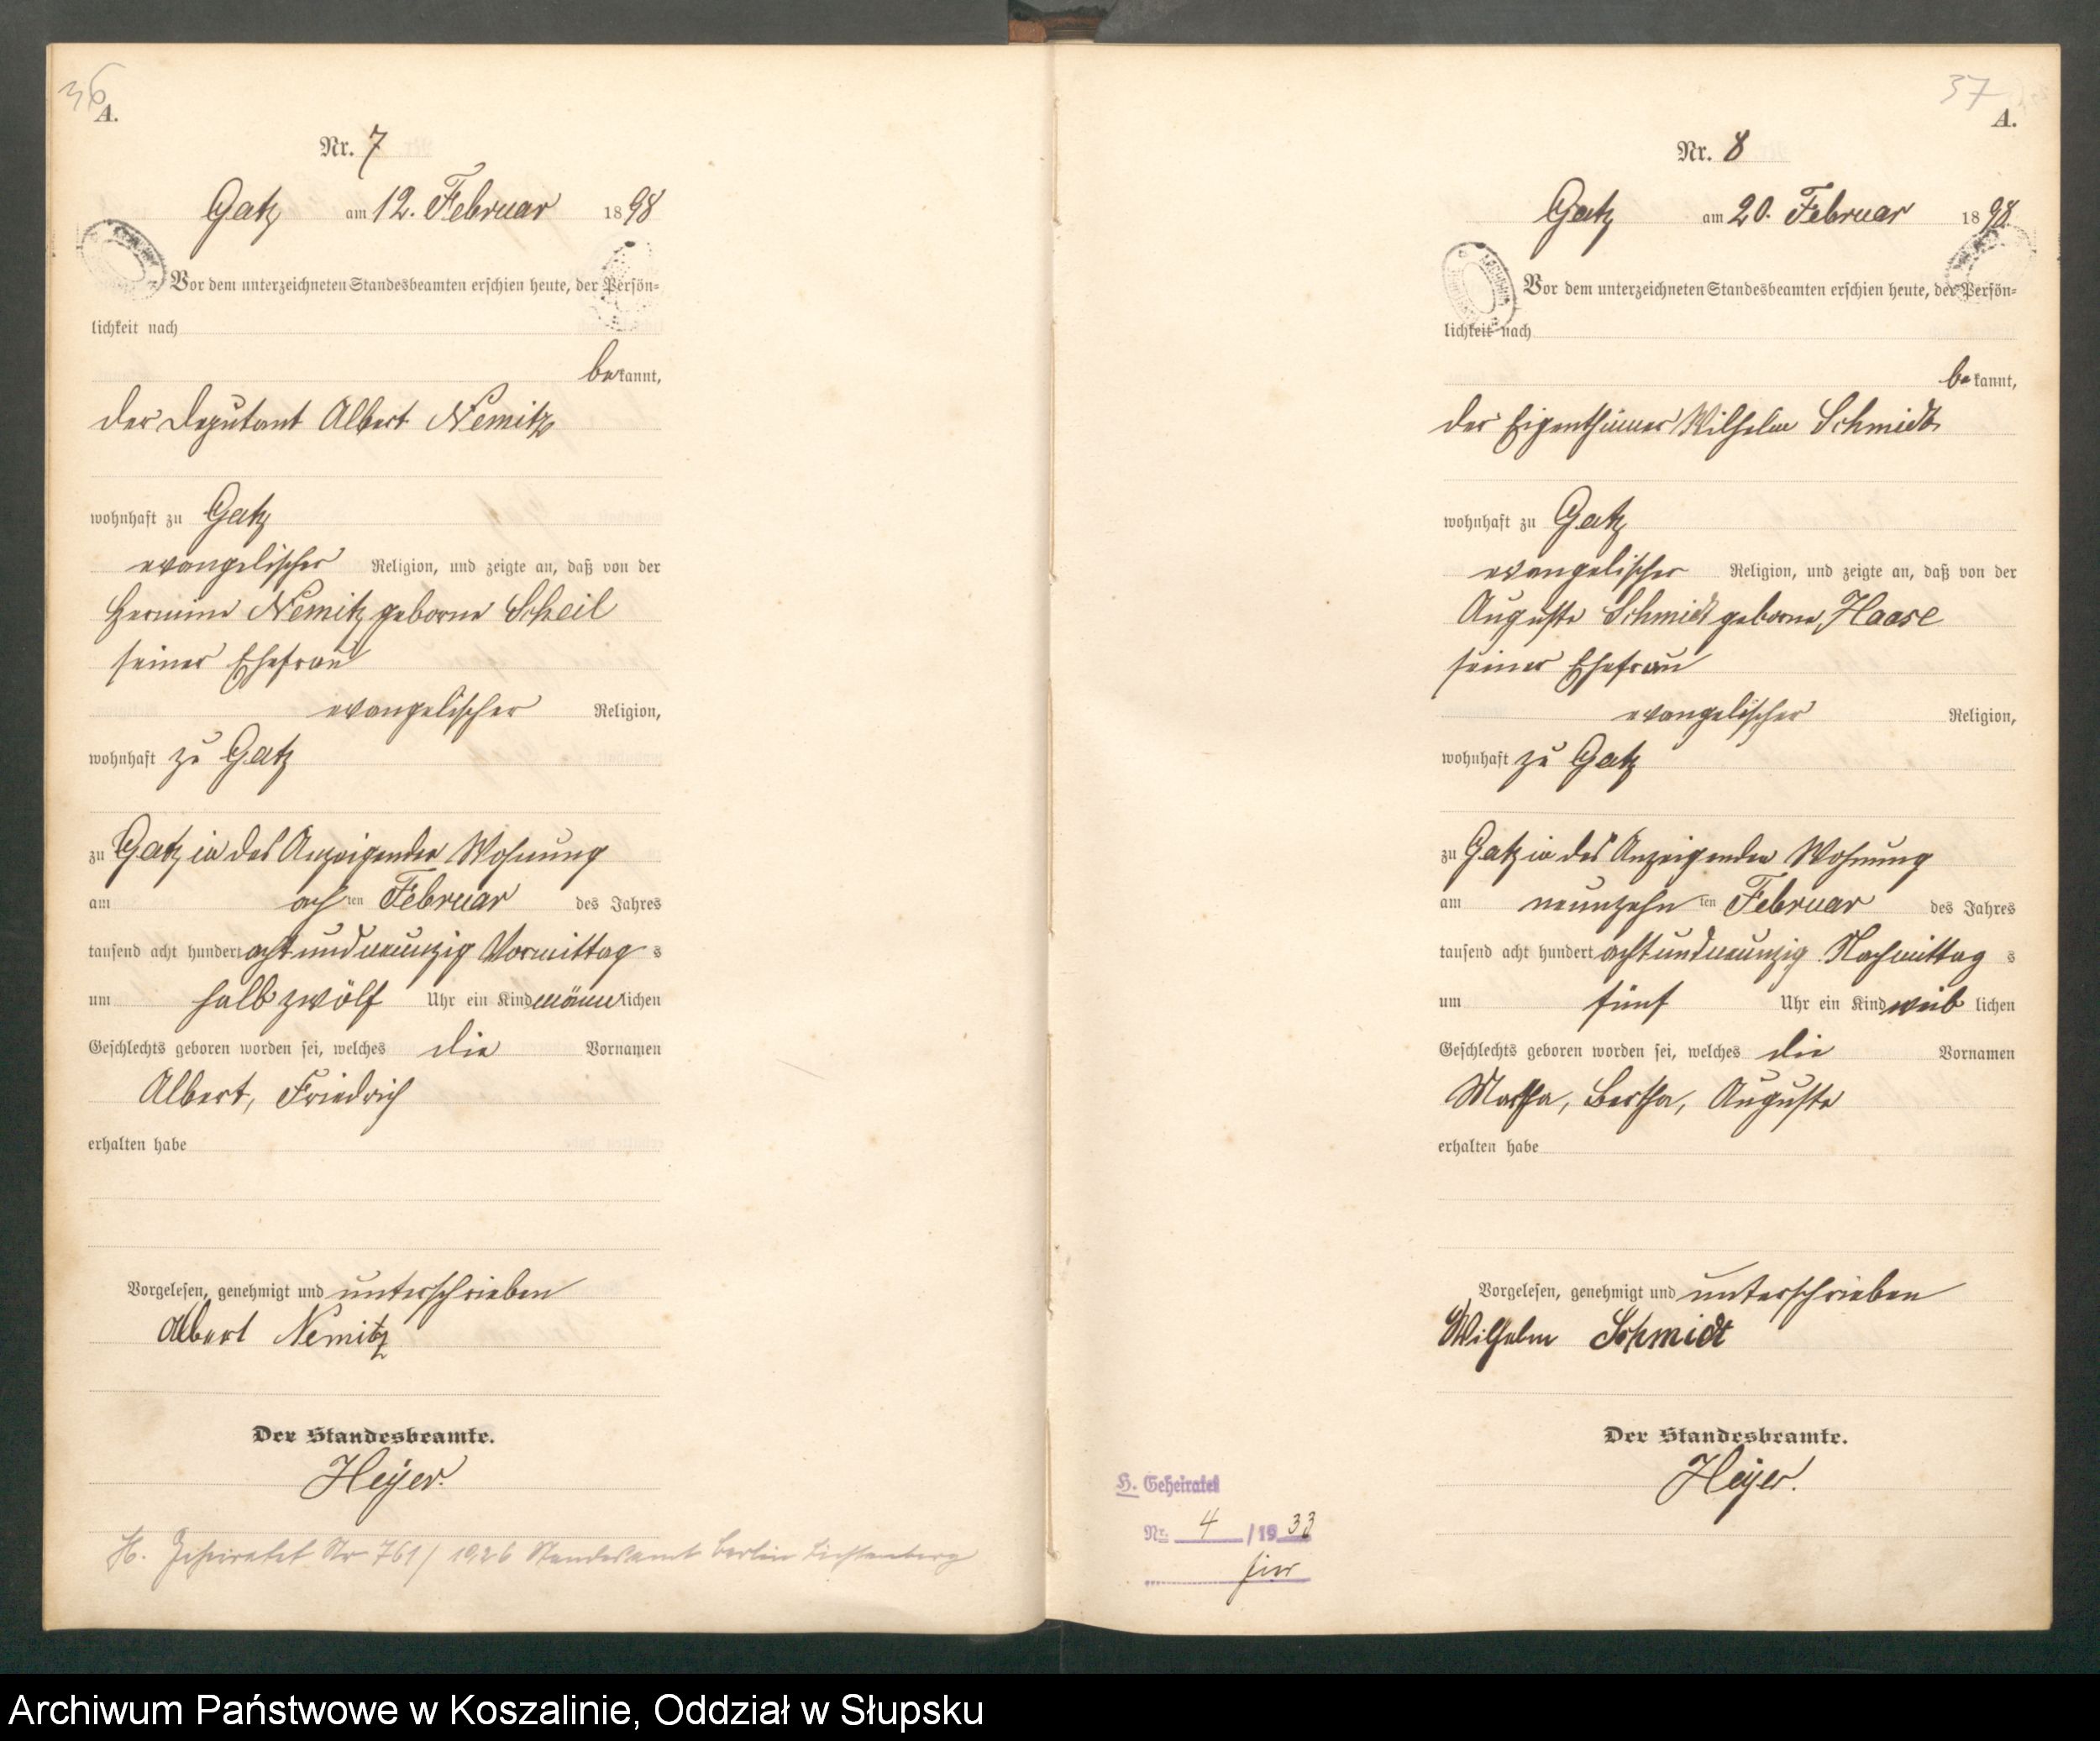 36
A.
Nr. 7
Gatz am 12. Februar 1898
Vor dem unterzeichneten Standesbeamten erschien heute, der Persön-
lichkeit nach
bekannt,
der Deputant Albert Nemitz
wohnhaft zu Gatz
evangelischer Religion, und zeigte an, daß von der
Hermine Nemitz geborne Scheil
seiner Ehefrau
evangelischer Religion,
wohnhaft zu Gatz
zu Gatz in des Anzeigenden Wohnung
am achten Februar des Jahres
tausend acht hundert acht und neunzig Vormittags
um halb zwölf Uhr ein Kind männlichen
Geschlechts geboren worden sei, welches die Vornamen
Albert, Friedrich
erhalten habe
Vorgelesen, genehmigt und unterschrieben
Albert Nemitz
Der Standesbeamte.
Heyer.
H. Geheiratet Nr 761/1926 Standesamt Berlin Lichtenberg
37
A.
Nr. 8
Gatz am 20. Februar 1898
Vor dem unterzeichneten Standesbeamten erschien heute, der Persön-
lichkeit nach
bekannt,
der Eigenthümer Wilhelm Schmidt
wohnhaft zu Gatz
evangelischer Religion, und zeigte an, daß von der
Auguste Schmidt geborne Haase
seiner Ehefrau
evangelischer Religion,
wohnhaft zu Gatz
zu Gatz in des Anzeigenden Wohnung
am neunzehnten Februar des Jahres
tausend acht hundert acht und neunzig Nachmittags
um fünf Uhr ein Kind weiblichen
Geschlechts geboren worden sei, welches die Vornamen
Martha, Bertha, Auguste
erhalten habe
Vorgelesen, genehmigt und unterschrieben
Wilhelm Schmidt
Der Standesbeamte.
Heyer.
H. Geheiratet
Nr. 4/1933
hier
Archiwum Państwowe w Koszalinie, Oddział w Słupsku